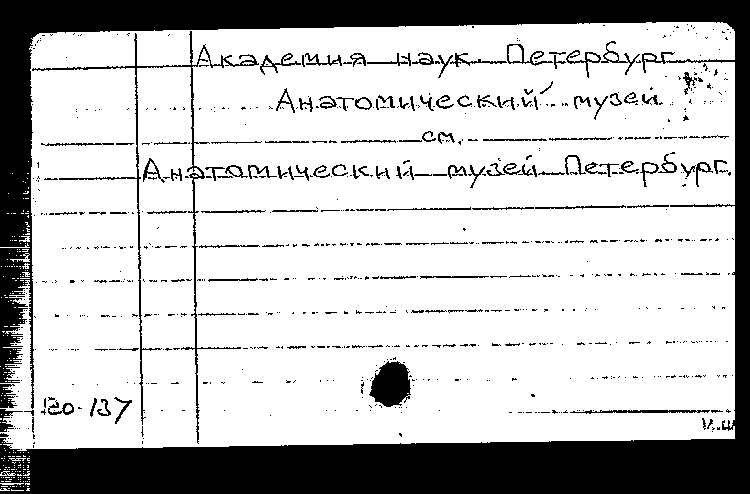 Академия наук. Петербург.
Анатомический музей
см.
Анатомический музей. Петербург.
120-137